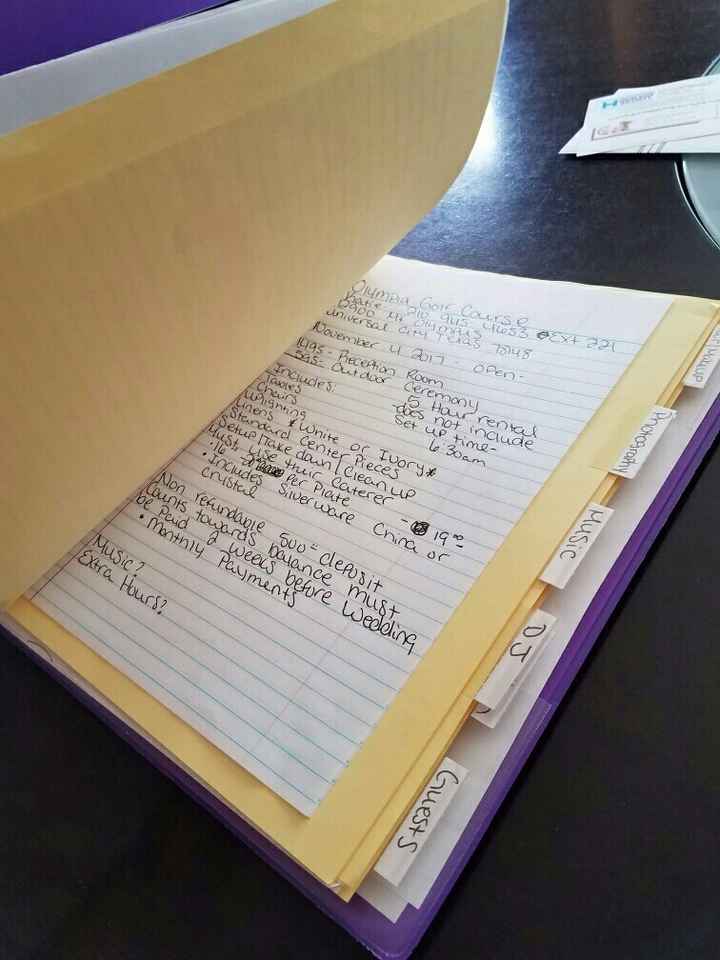 Olympia Golf Course
210 945 4653 Ext 221
12900 Mt Olympus
Universal City Texas 78148
November 4 2017 - open-
1495- Reception Room
595- Outdoor Ceremony
Includes:
Tables
Chairs
Uplighting
Linens * White or Ivory*
5 Hour rental
does not include
Set up time-
6:30am
Standard Center Pieces
Setup/Takedown/Clean up
Must use their caterer
Per Plate - 19.00
• Includes Silverware China or
Non refundable 500 deposit
Counts towards balance must
be paid 2 weeks before Wedding
• Monthly Payments
Music?
Extra Hours?
Makeup
Photography
Music
DJ
Guests